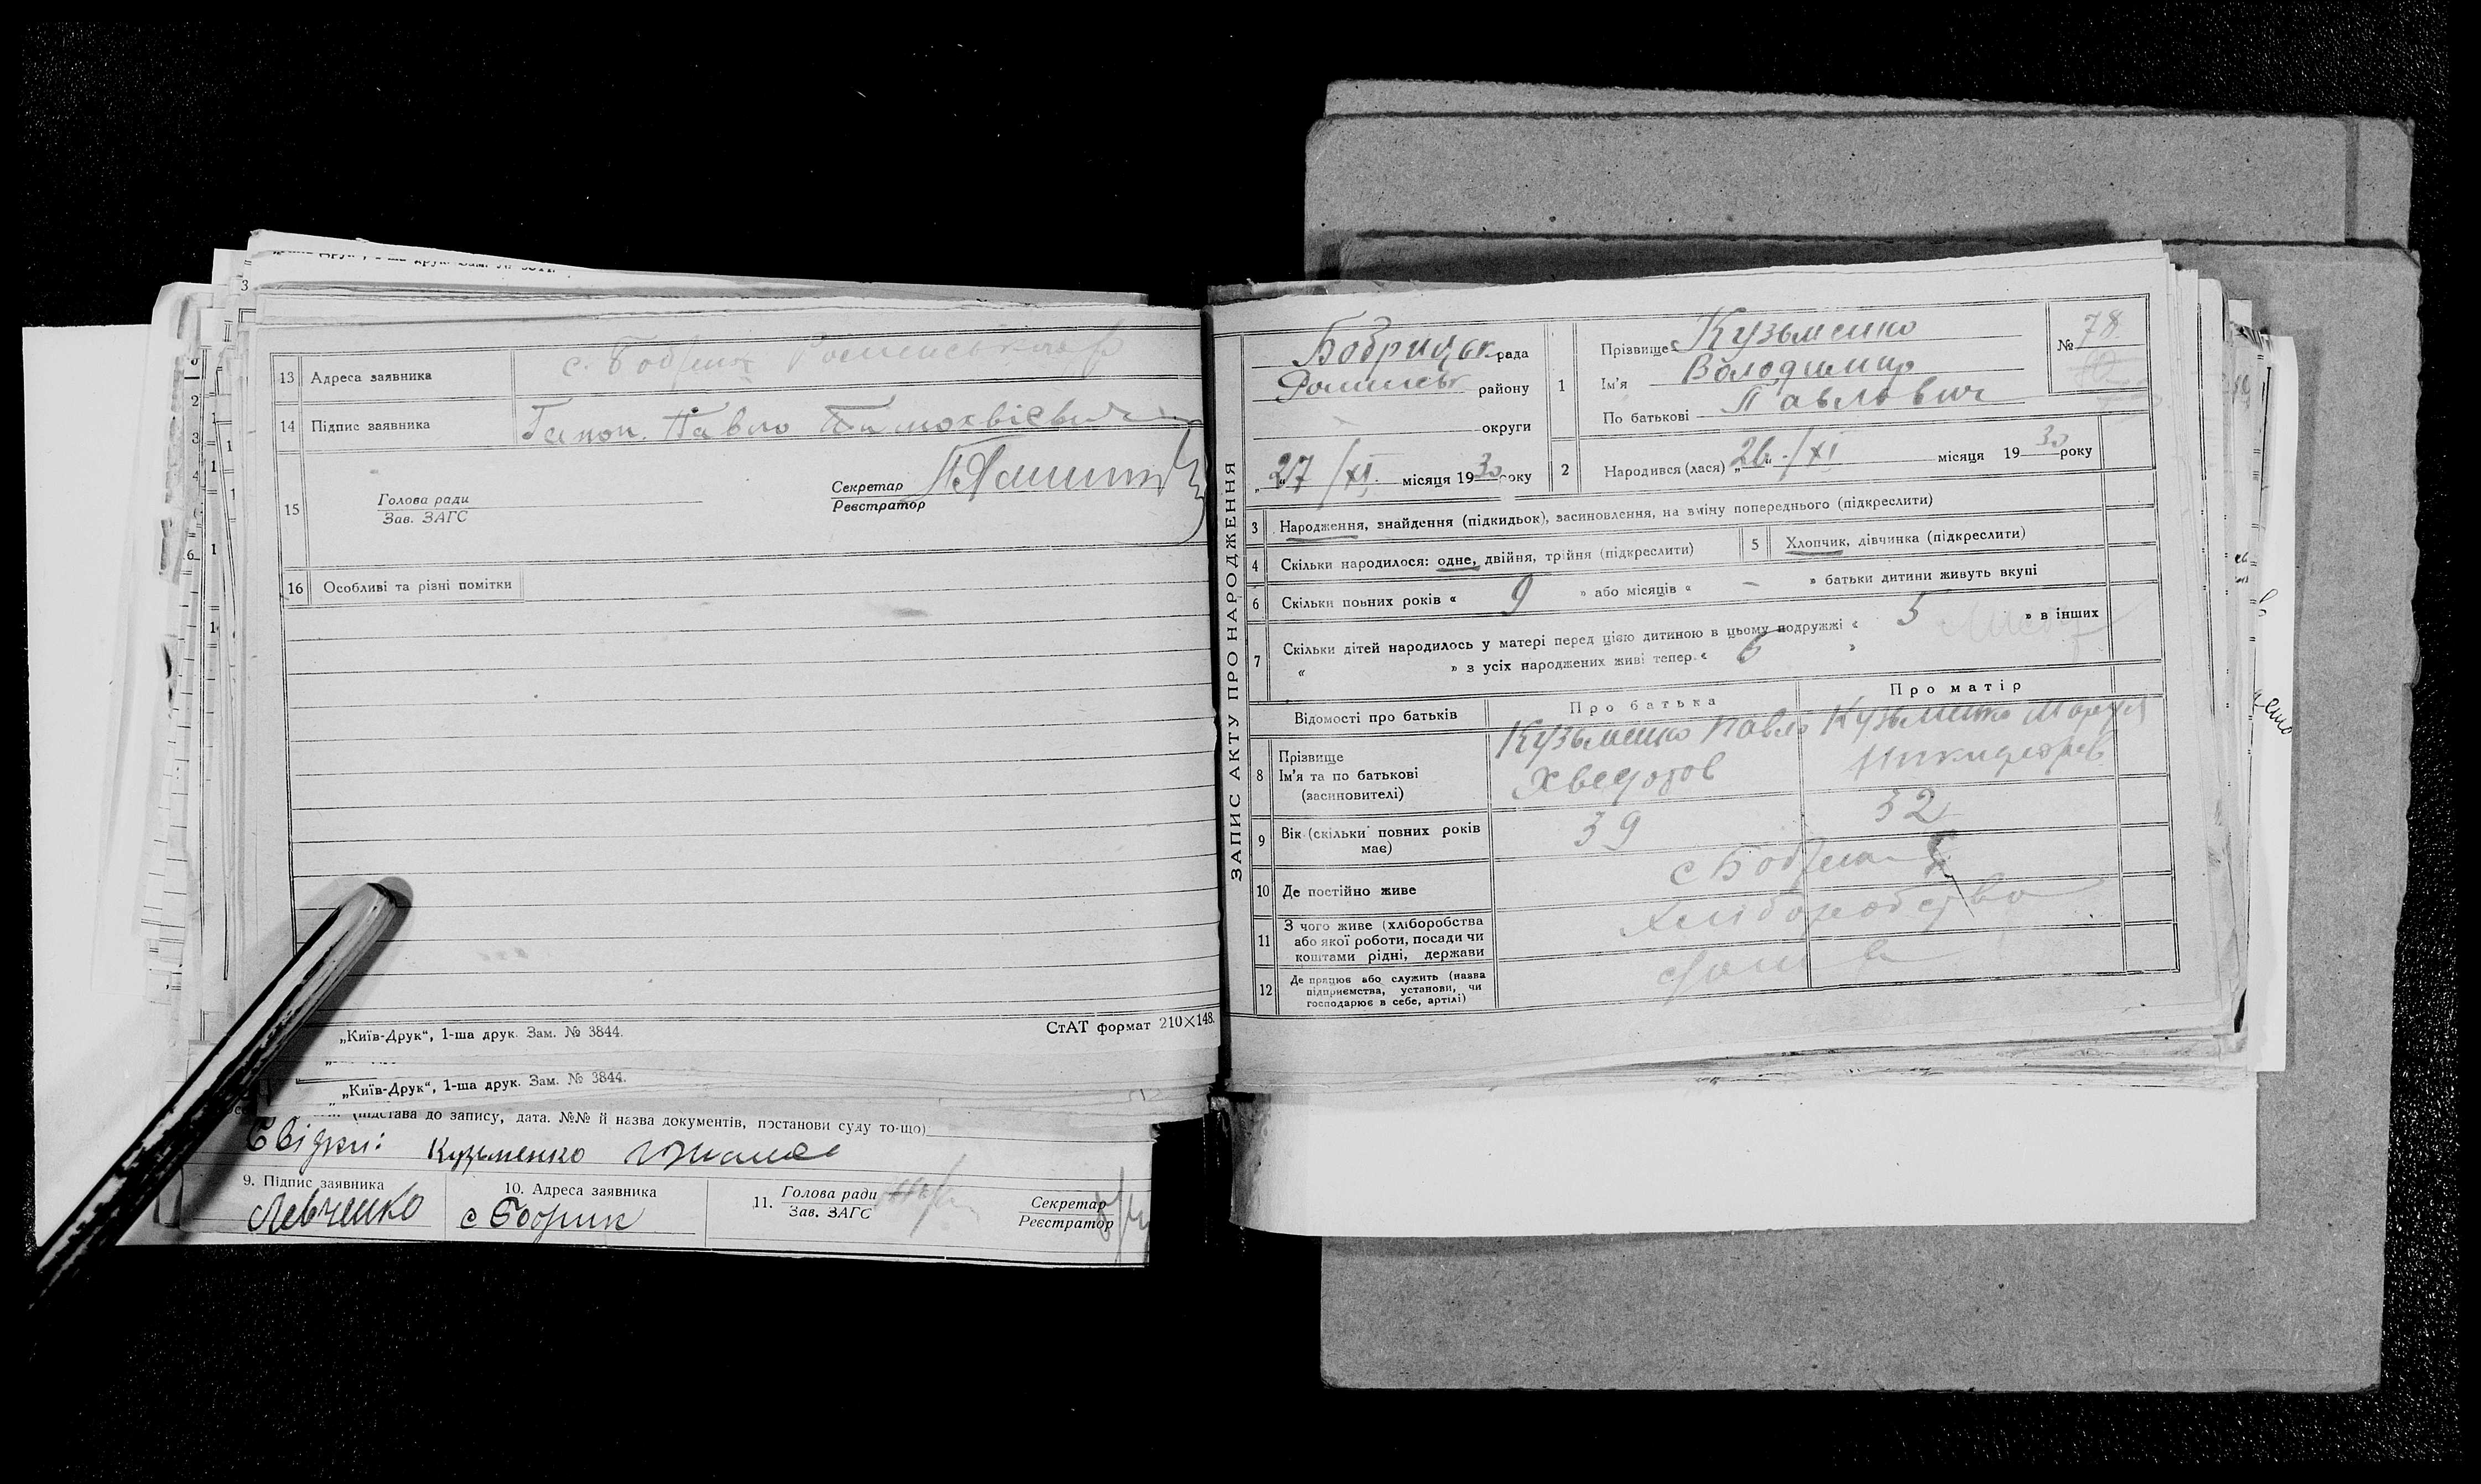 13 Адреса заявника с. Бобрик Роменського р
14 Підпис заявника Гапон. Павло Тимохвієвич
15 Голова ради Секретар
Зав. ЗАГС Реєстратор
16 Особливі та різні помітки
„Київ-Друк“, 1-ша друк. Зам. № 3844. СтАТ формат 210×148.
„Київ-Друк“, 1-ша друк. Зам. № 3844.
(підстава до запису, дата. №№ й назва документів, постанови суду то-що)
Свідки: Кузьменко
9. Підпис заявника 10. Адреса заявника 11. Голова ради Секретар
Зав. ЗАГС Реєстратор
Левченко с Бобрик
ЗАПИС АКТУ ПРО НАРОДЖЕННЯ
Бобрицьк рада
Роменськ району
округи
„27“ /XI. місяця 1930 року
1 Прізвище Кузьменко
Ім'я Володимир
По батькові Павлович
№ 78
2 Народився (лася) „26“ /XI місяця 1930 року
3 Народження, знайдення (підкидьок), засиновлення, на зміну попереднього (підкреслити)
4 Скільки народилося: одне, двійня, трійня (підкреслити) 5 Хлопчик, дівчинка (підкреслити)
6 Скільки повних років « 9 » або місяців « – » батьки дитини живуть вкупі
7 Скільки дітей народилось у матері перед цією дитиною в цьому подружжі « 5 » в інших
« » з усіх народжених живі тепер « 6 »
Відомості про батьків Про батька Про матір
8 Прізвище
Ім'я та по батькові
(засиновителі)
Кузьменко Павло
Хведоров
Кузьменко Маруся
Никифорів
9 Вік (скільки повних років має) 39 32
10 Де постійно живе с Бобрик
11 З чого живе (хліборобства
або якої роботи, посади чи
коштами рідні, держави
Хліборобство
12 Де працює або служить (назва
підприємства, установи, чи
господарює в себе, артілі)